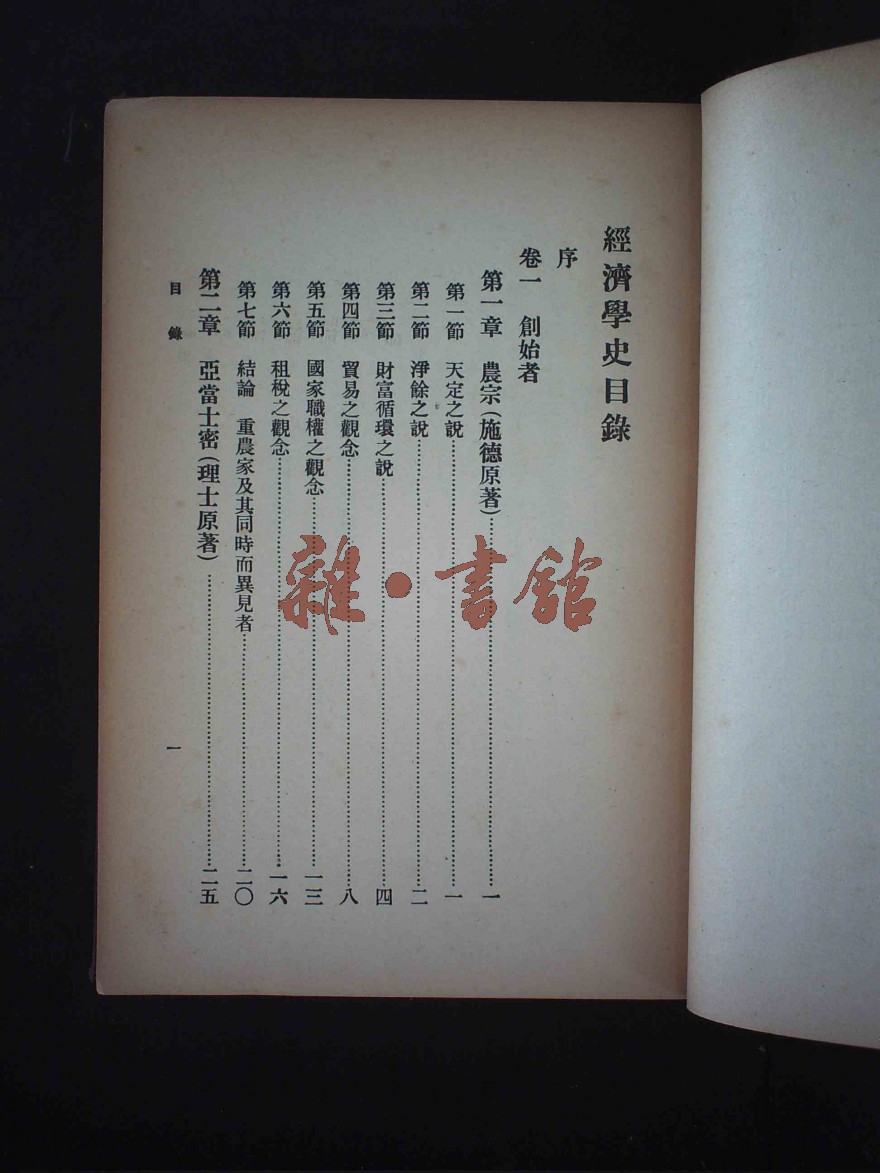 經濟學史目錄
序
卷一 創始者
第一章 農宗(施德原著)……一
第一節 天定之說……一
第二節 淨餘之說……二
第三節 財富循環之說……四
第四節 貿易之觀念……八
第五節 國家職權之觀念……一三
第六節 租稅之觀念……一六
第七節 結論 重農家及其同時而異見者……二〇
第二章 亞當士密(理士原著)……二五
目錄
一
雜·書館